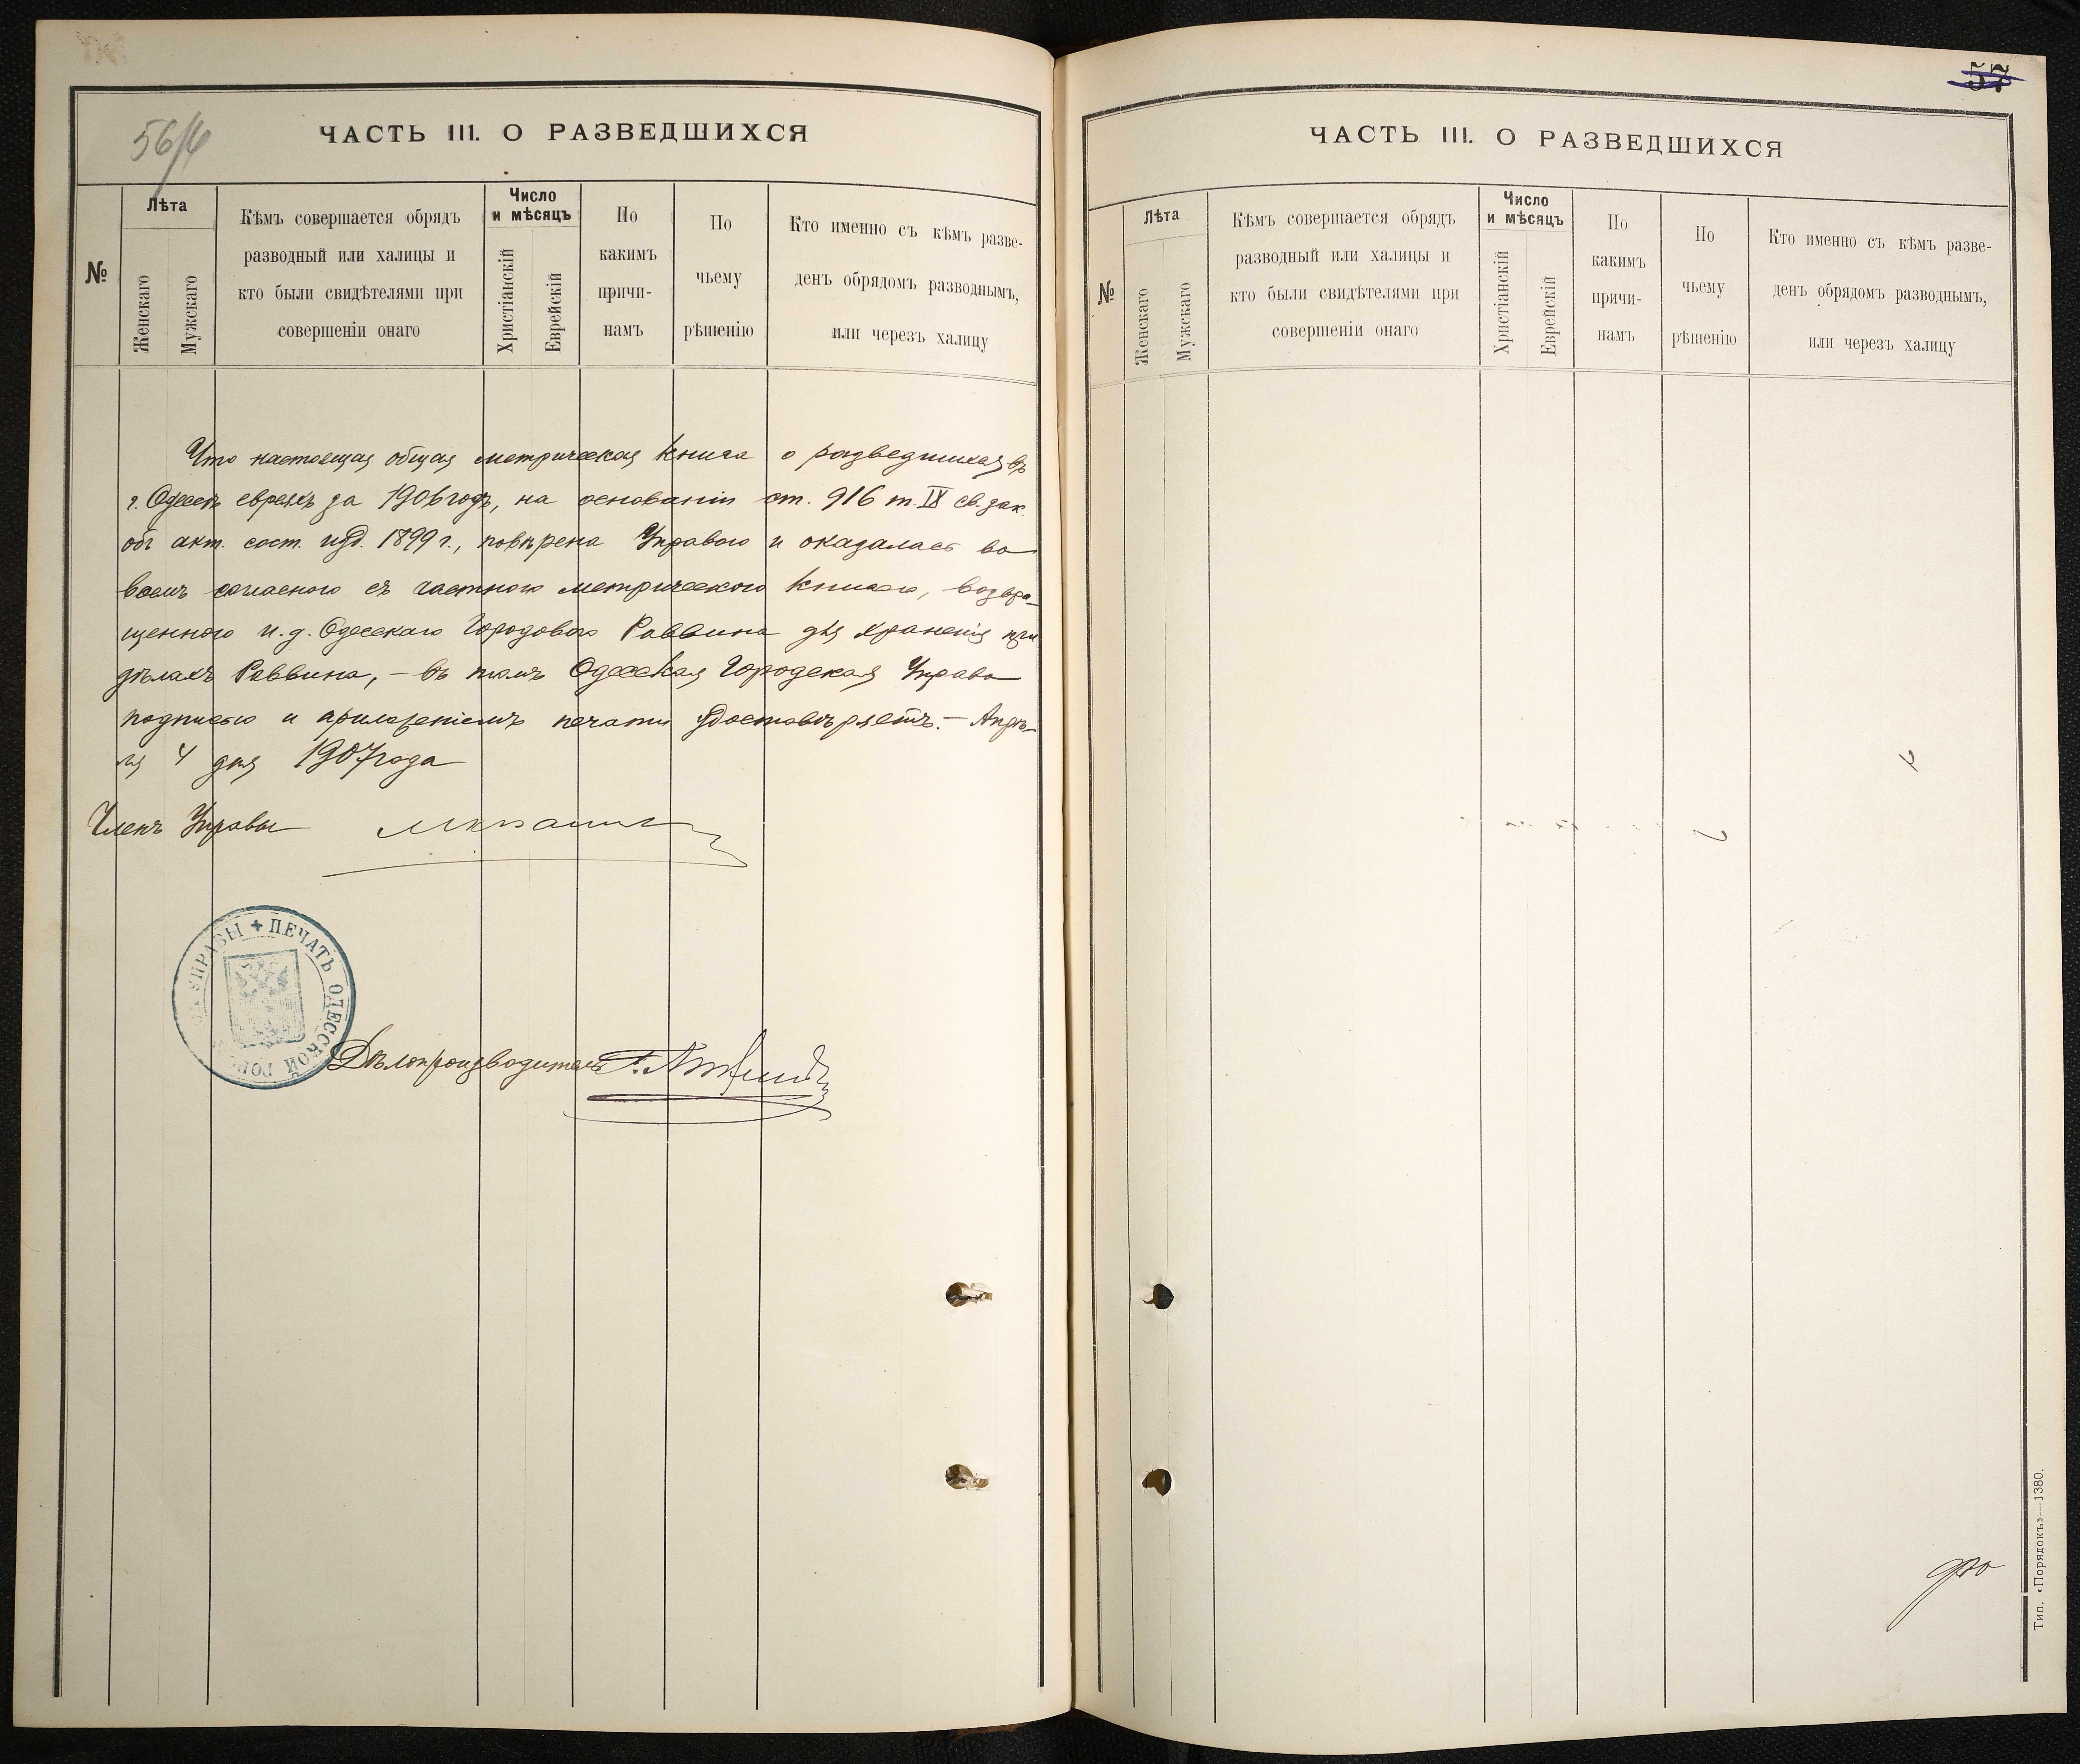 56
ЧАСТЬ III. О РАЗВЕДШИХСЯ
№
Лѣта
Женскаго
Мужскаго
Кѣмъ совершается обрядъ
разводный или халицы и
кто были свидѣтелями при
совершеніи онаго
Число
и мѣсяцъ
Христіанскій
Еврейскій
По
какимъ
причи-
намъ
По
чьему
рѣшенію
Кто именно съ кѣмъ разве-
денъ обрядомъ разводнымъ,
или черезъ халицу
Что настоящая общая метрическая книга о разведшихся въ
г. Одессѣ евреяхъ за 1906 годъ, на основаніи ст. 916 т. IX св. зак.
об акт. сост. изд. 1899 г., повѣрена Управою и оказалась во
всемъ согласною съ частною метрическою книгою, возвра-
щенною и. д. Одесскаго Городового Раввина для храненія при
дѣлахъ Раввина, – въ томъ Одесская Городская Управа
подписью и приложеніемъ печати удостовѣряетъ. – Апрѣ-
ля 4 дня 1907 года
Членъ Управы
ПЕЧАТЬ ОДЕССКОЙ ГОР УПРАВЫ
Дѣлопроизводитель
57
ЧАСТЬ III. О РАЗВЕДШИХСЯ
№
Лѣта
Женскаго
Мужскаго
Кѣмъ совершается обрядъ
разводный или халицы и
кто были свидѣтелями при
совершеніи онаго
Число
и мѣсяцъ
Христіанскій
Еврейскій
По
какимъ
причи-
намъ
По
чьему
рѣшенію
Кто именно съ кѣмъ разве-
денъ обрядомъ разводнымъ,
или черезъ халицу
Тип. «Порядокъ»—1380.